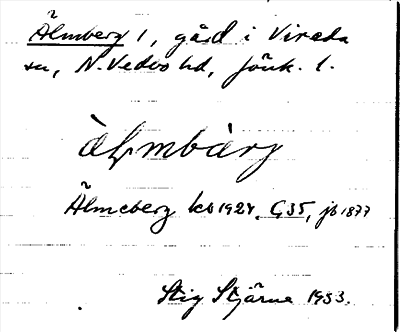 Älmberg 1, gård i Vireda
sn, N. Vedbo hd, Jönk. l.
Älmeberg ks 1929, G35, jb 1877
Stig Stjärne 1953.